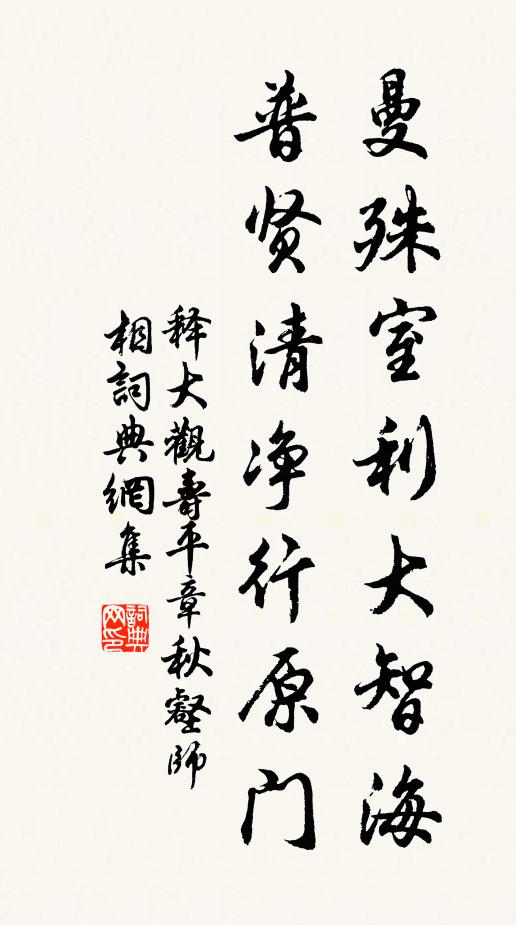 曼殊室利大智海
普贤清净行原门
释大觀壽平章秋壑師
相詞典網集
詞典网印